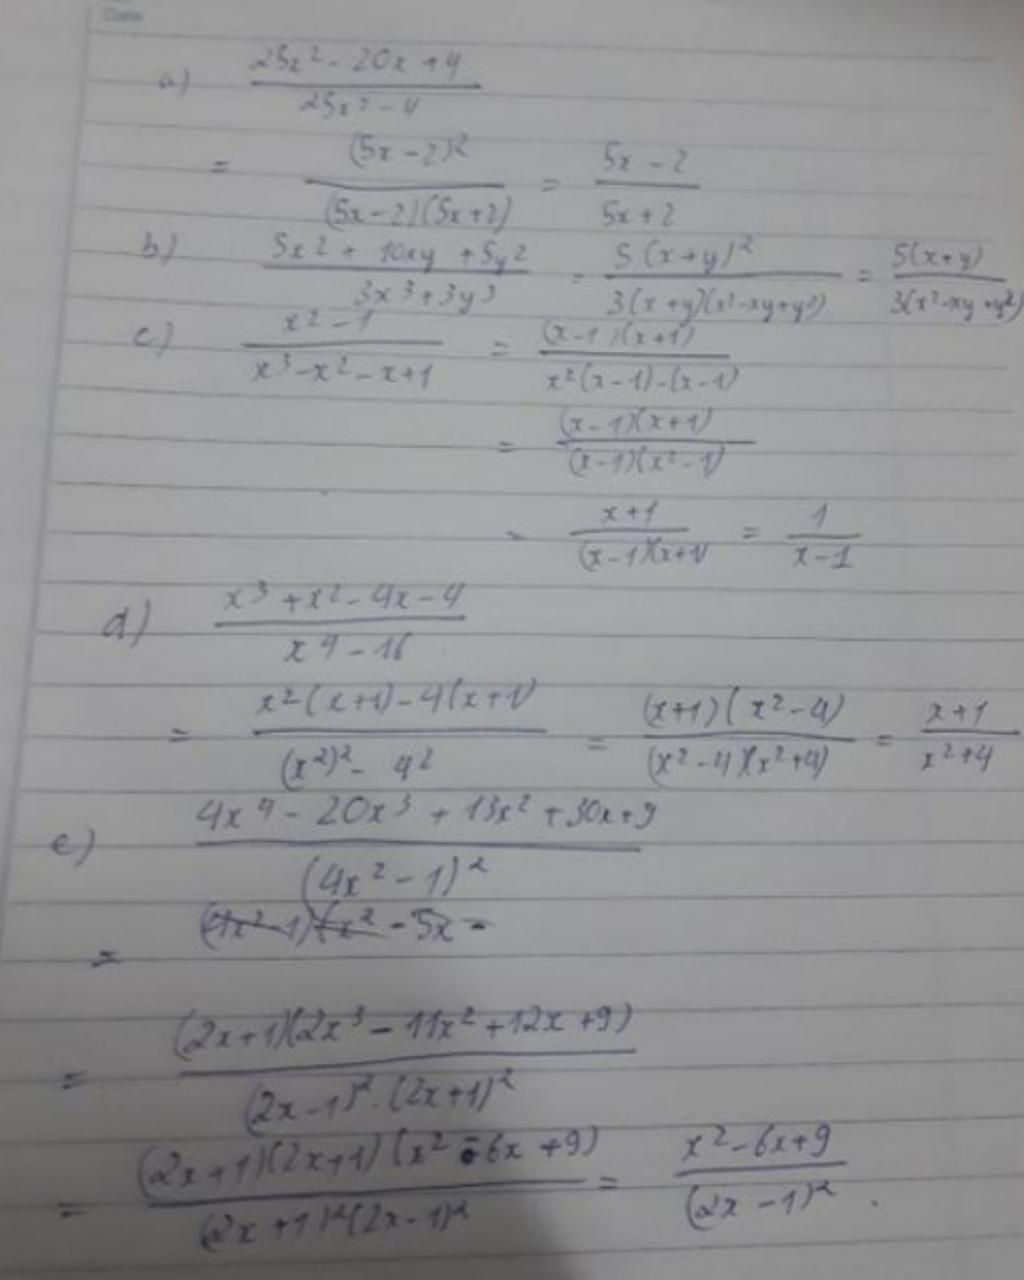 Date
a) (25x² - 20x + 4)/(25x² - 4)
= (5x - 2)²/((5x - 2)(5x + 2)) = (5x - 2)/(5x + 2)
b) (5x² + 10xy + 5y²)/(3x³ + 3y³) = 5(x + y)²/(3(x + y)(x² - xy + y²)) = 5(x + y)/(3(x² - xy + y²))
c) (x² - 1)/(x³ - x² - x + 1) = ((x - 1)(x + 1))/(x²(x - 1) - (x - 1))
= ((x - 1)(x + 1))/((x - 1)(x² - 1))
= (x + 1)/((x - 1)(x + 1)) = 1/(x - 1)
d) (x³ + x² - 4x - 4)/(x⁴ - 16)
= (x²(x + 1) - 4(x + 1))/((x²)² - 4²) = ((x + 1)(x² - 4))/((x² - 4)(x² + 4)) = (x + 1)/(x² + 4)
e) (4x⁴ - 20x³ + 13x² + 30x + 9)/(4x² - 1)²
= ((2x + 1)(2x³ - 11x² + 12x + 9))/((2x - 1)² . (2x + 1)²)
= ((2x + 1)(2x + 1)(x² - 6x + 9))/((2x + 1)²(2x - 1)²) = (x² - 6x + 9)/(2x - 1)² .